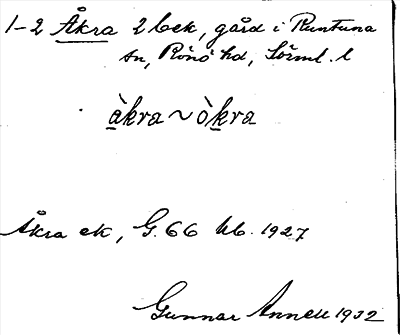 1-2 Åkra 2 bek, gård i Runtuna
sn, Rönö hd, Sörml. l
àkra ~ òkra
Åkra ek, G. 66 hb. 1927
Gunnar Annell 1932